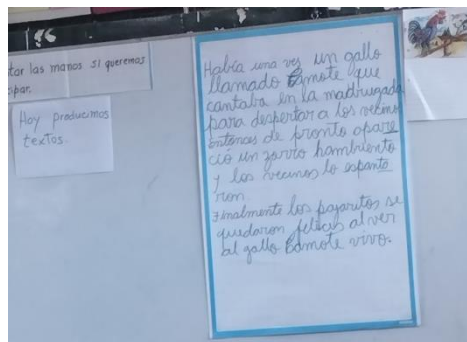 tar las manos si queremos
cipar.
Hoy producimos
textos
Había una ves un gallo
llamado Camote que
cantaba en la madrugada
para despertar a los vecinos
entonces de pronto apare
ció un zorro hambriento
y los vecinos lo espanta
ron
Finalmente los pajaritos se
quedaron felices al ver
al gallo Camote vivo.